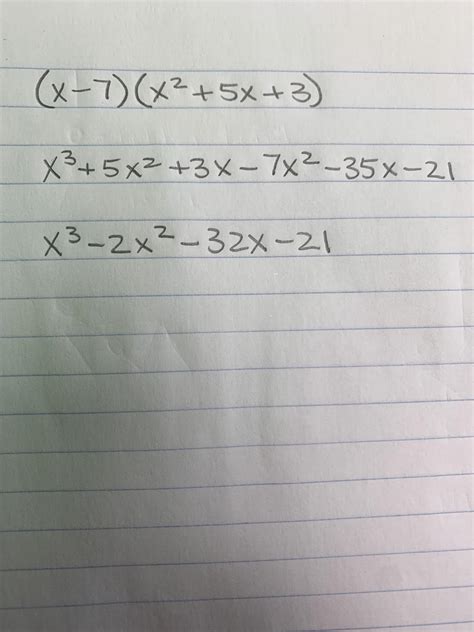 (x-7)(x²+5x+3)
x³+5x²+3x-7x²-35x-21
x³-2x²-32x-21